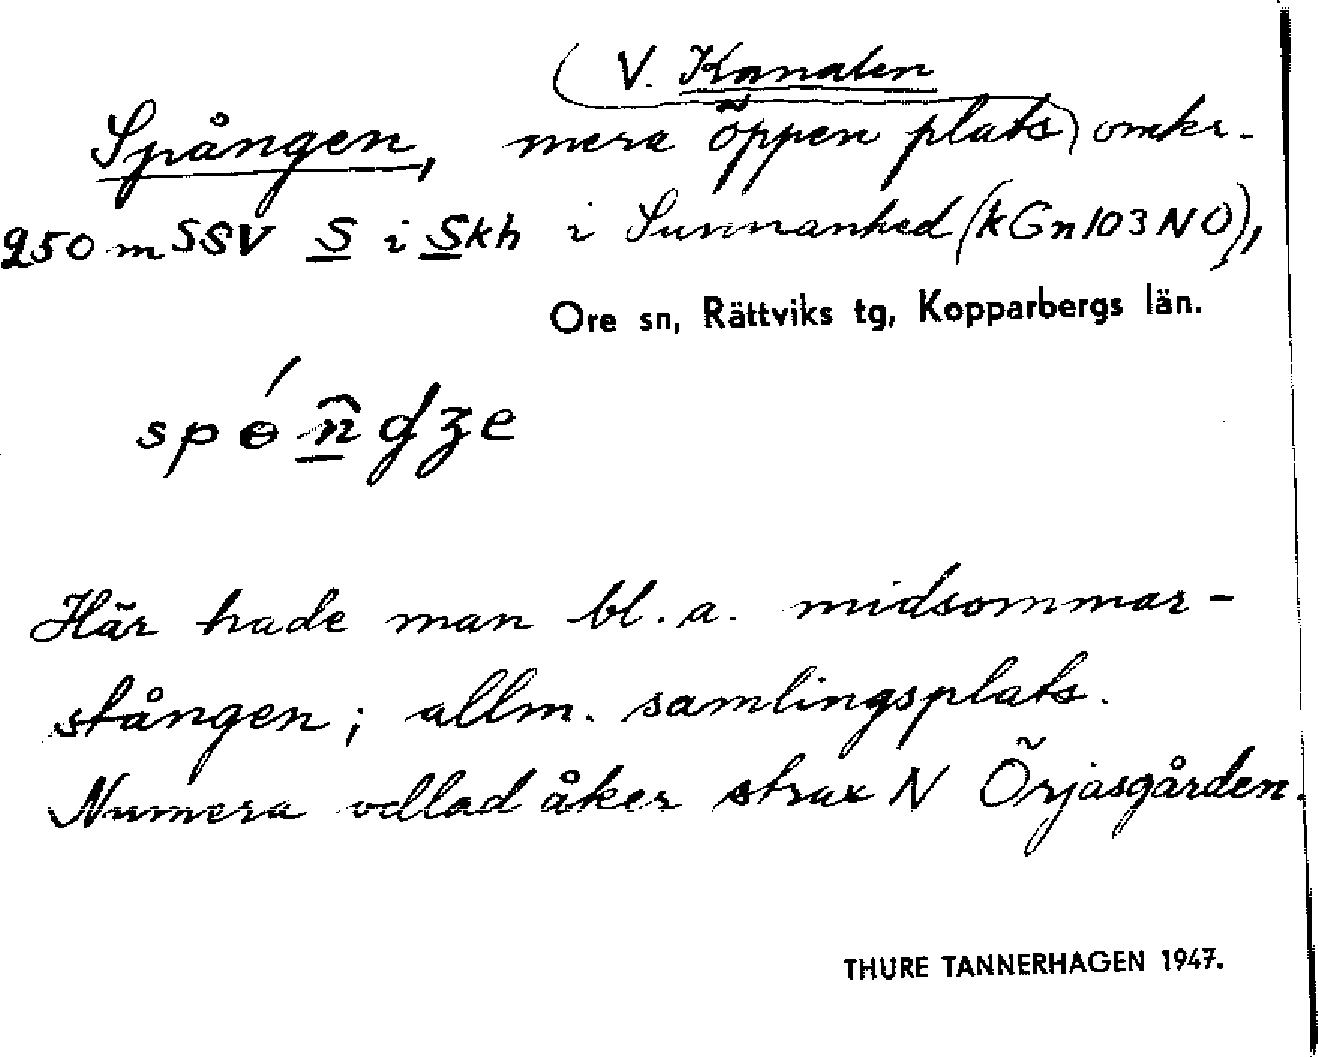 V. Kanalen
Spången, mera öppen plats) omkr-
250 m SSV S i Skh i Sunnanhed (kGn103NO),
Ore sn, Rättviks tg, Kopparbergs län.
Här hade man bl.a. midsommar-
stången; allm. samlingsplats.
Numera odlad åker strax N Örjasgården.
THURE TANNERHAGEN 1947.